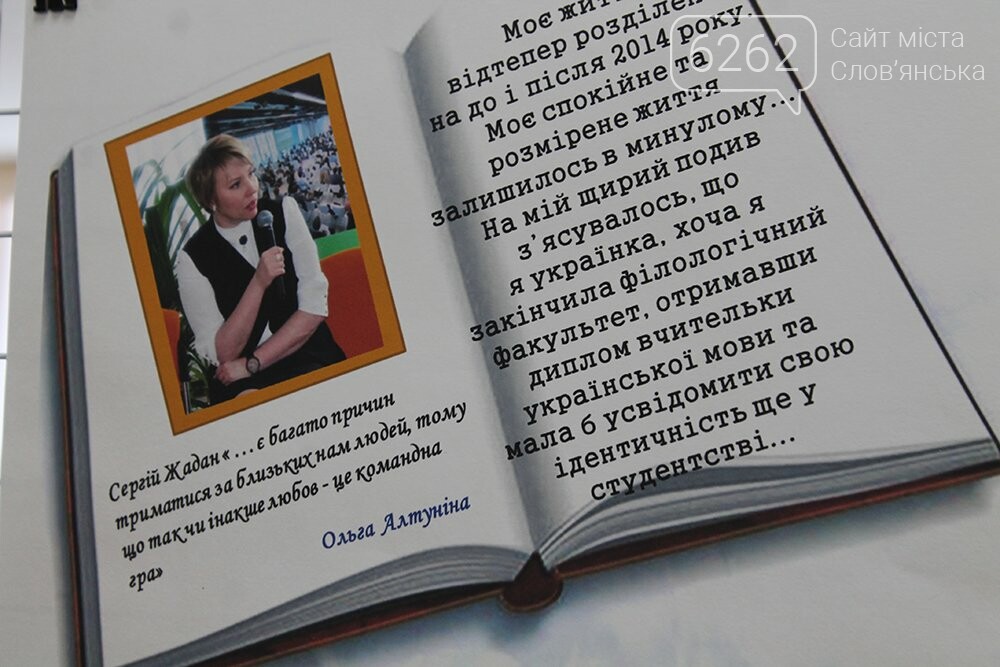 Сергій Жадан « ... є багато причин
триматися за близьких нам людей, тому
що так чи інакше любов - це командна
гра»
Ольга Алтуніна
Моє
відтепер розділен
на до і після 2014 року.
Моє спокійне та
розмірене життя
залишилось в минулому...
На мій щирий подив
з'ясувалось, що
я українка, хоча я
закінчила філологічний
факультет, отримавши
диплом вчительки
української мови та
мала б усвідомити свою
ідентичність ще у
студентстві...
6262
Сайт міста
Слов'янська